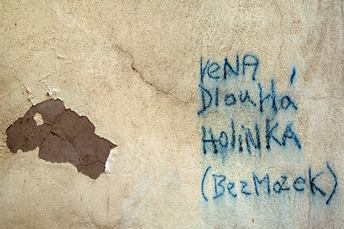 veNA
DlouHá
HoliNKA
(BezMozek)